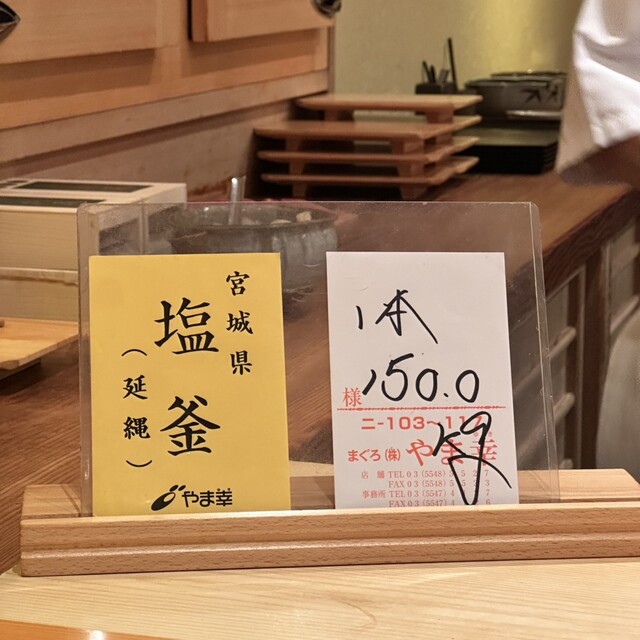 宮城県
塩釜
(延縄)
やま幸
1本
150.0
kg
様
二-103~11
まぐろ(株)やま幸
店舗 TEL03(5548)
FAX03(5548)
事務所 TEL03(5547)
FAX03(5547)